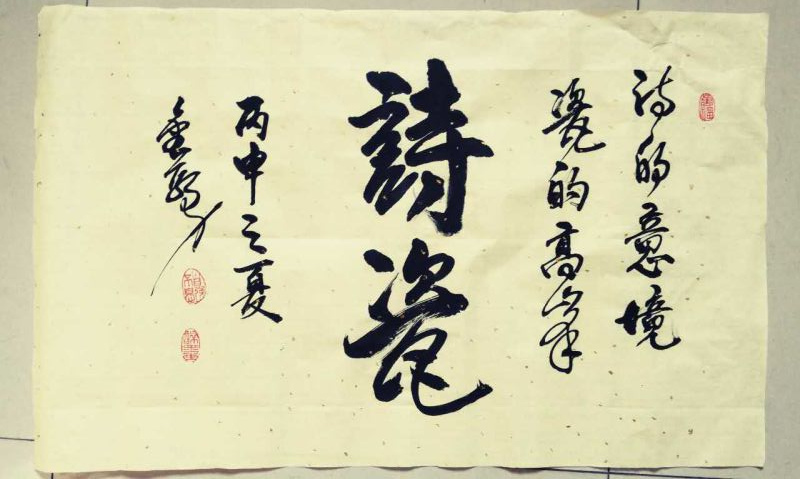 诗的意境
瓷的高峯
詩瓷
丙申之夏